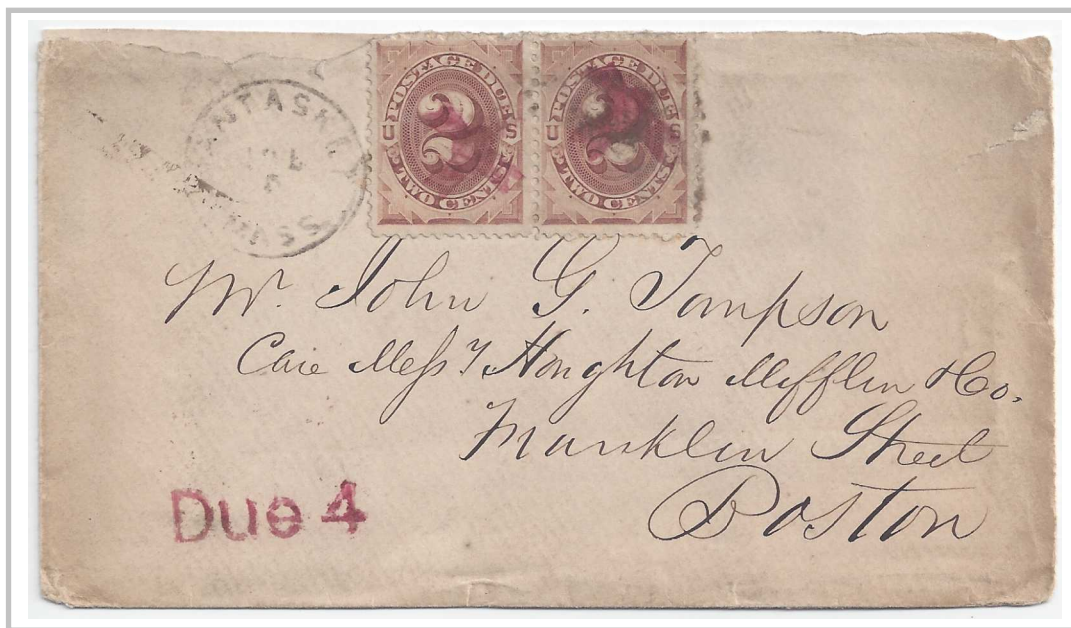 NANTASKET
MASS
U POSTAGE DUE S
2
TWO CENTS
U POSTAGE DUE S
2
TWO CENTS
Mr. John G. Tompson
Care Messrs Houghton Mifflin & Co.
Franklin Street
Boston
Due 4